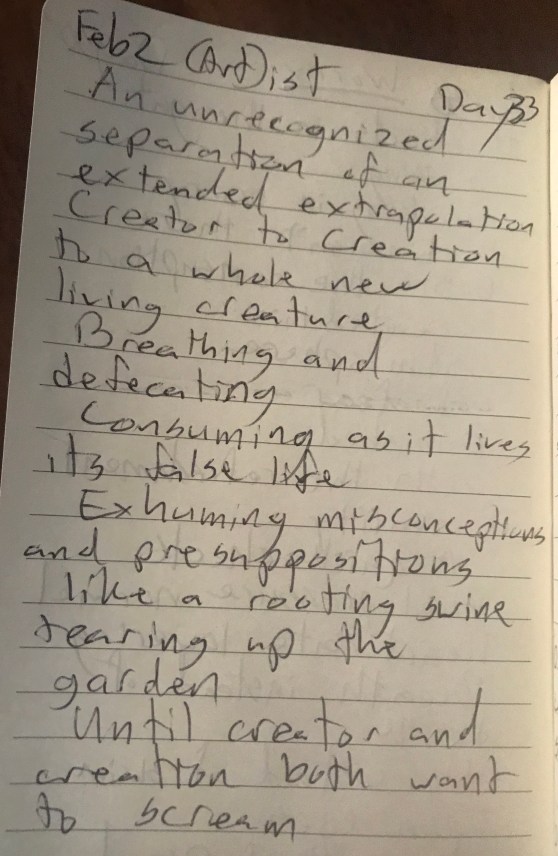 Feb 2 (Art)ist Day 33
An unrecognized
separation of an
extended extrapolation
Creator to Creation
to a whole new
living creature
Breathing and
defecating
Consuming as it lives
its false life
Exhuming misconceptions
and presuppositions
like a rooting swine
tearing up the
garden
Until creator and
creation both want
to scream